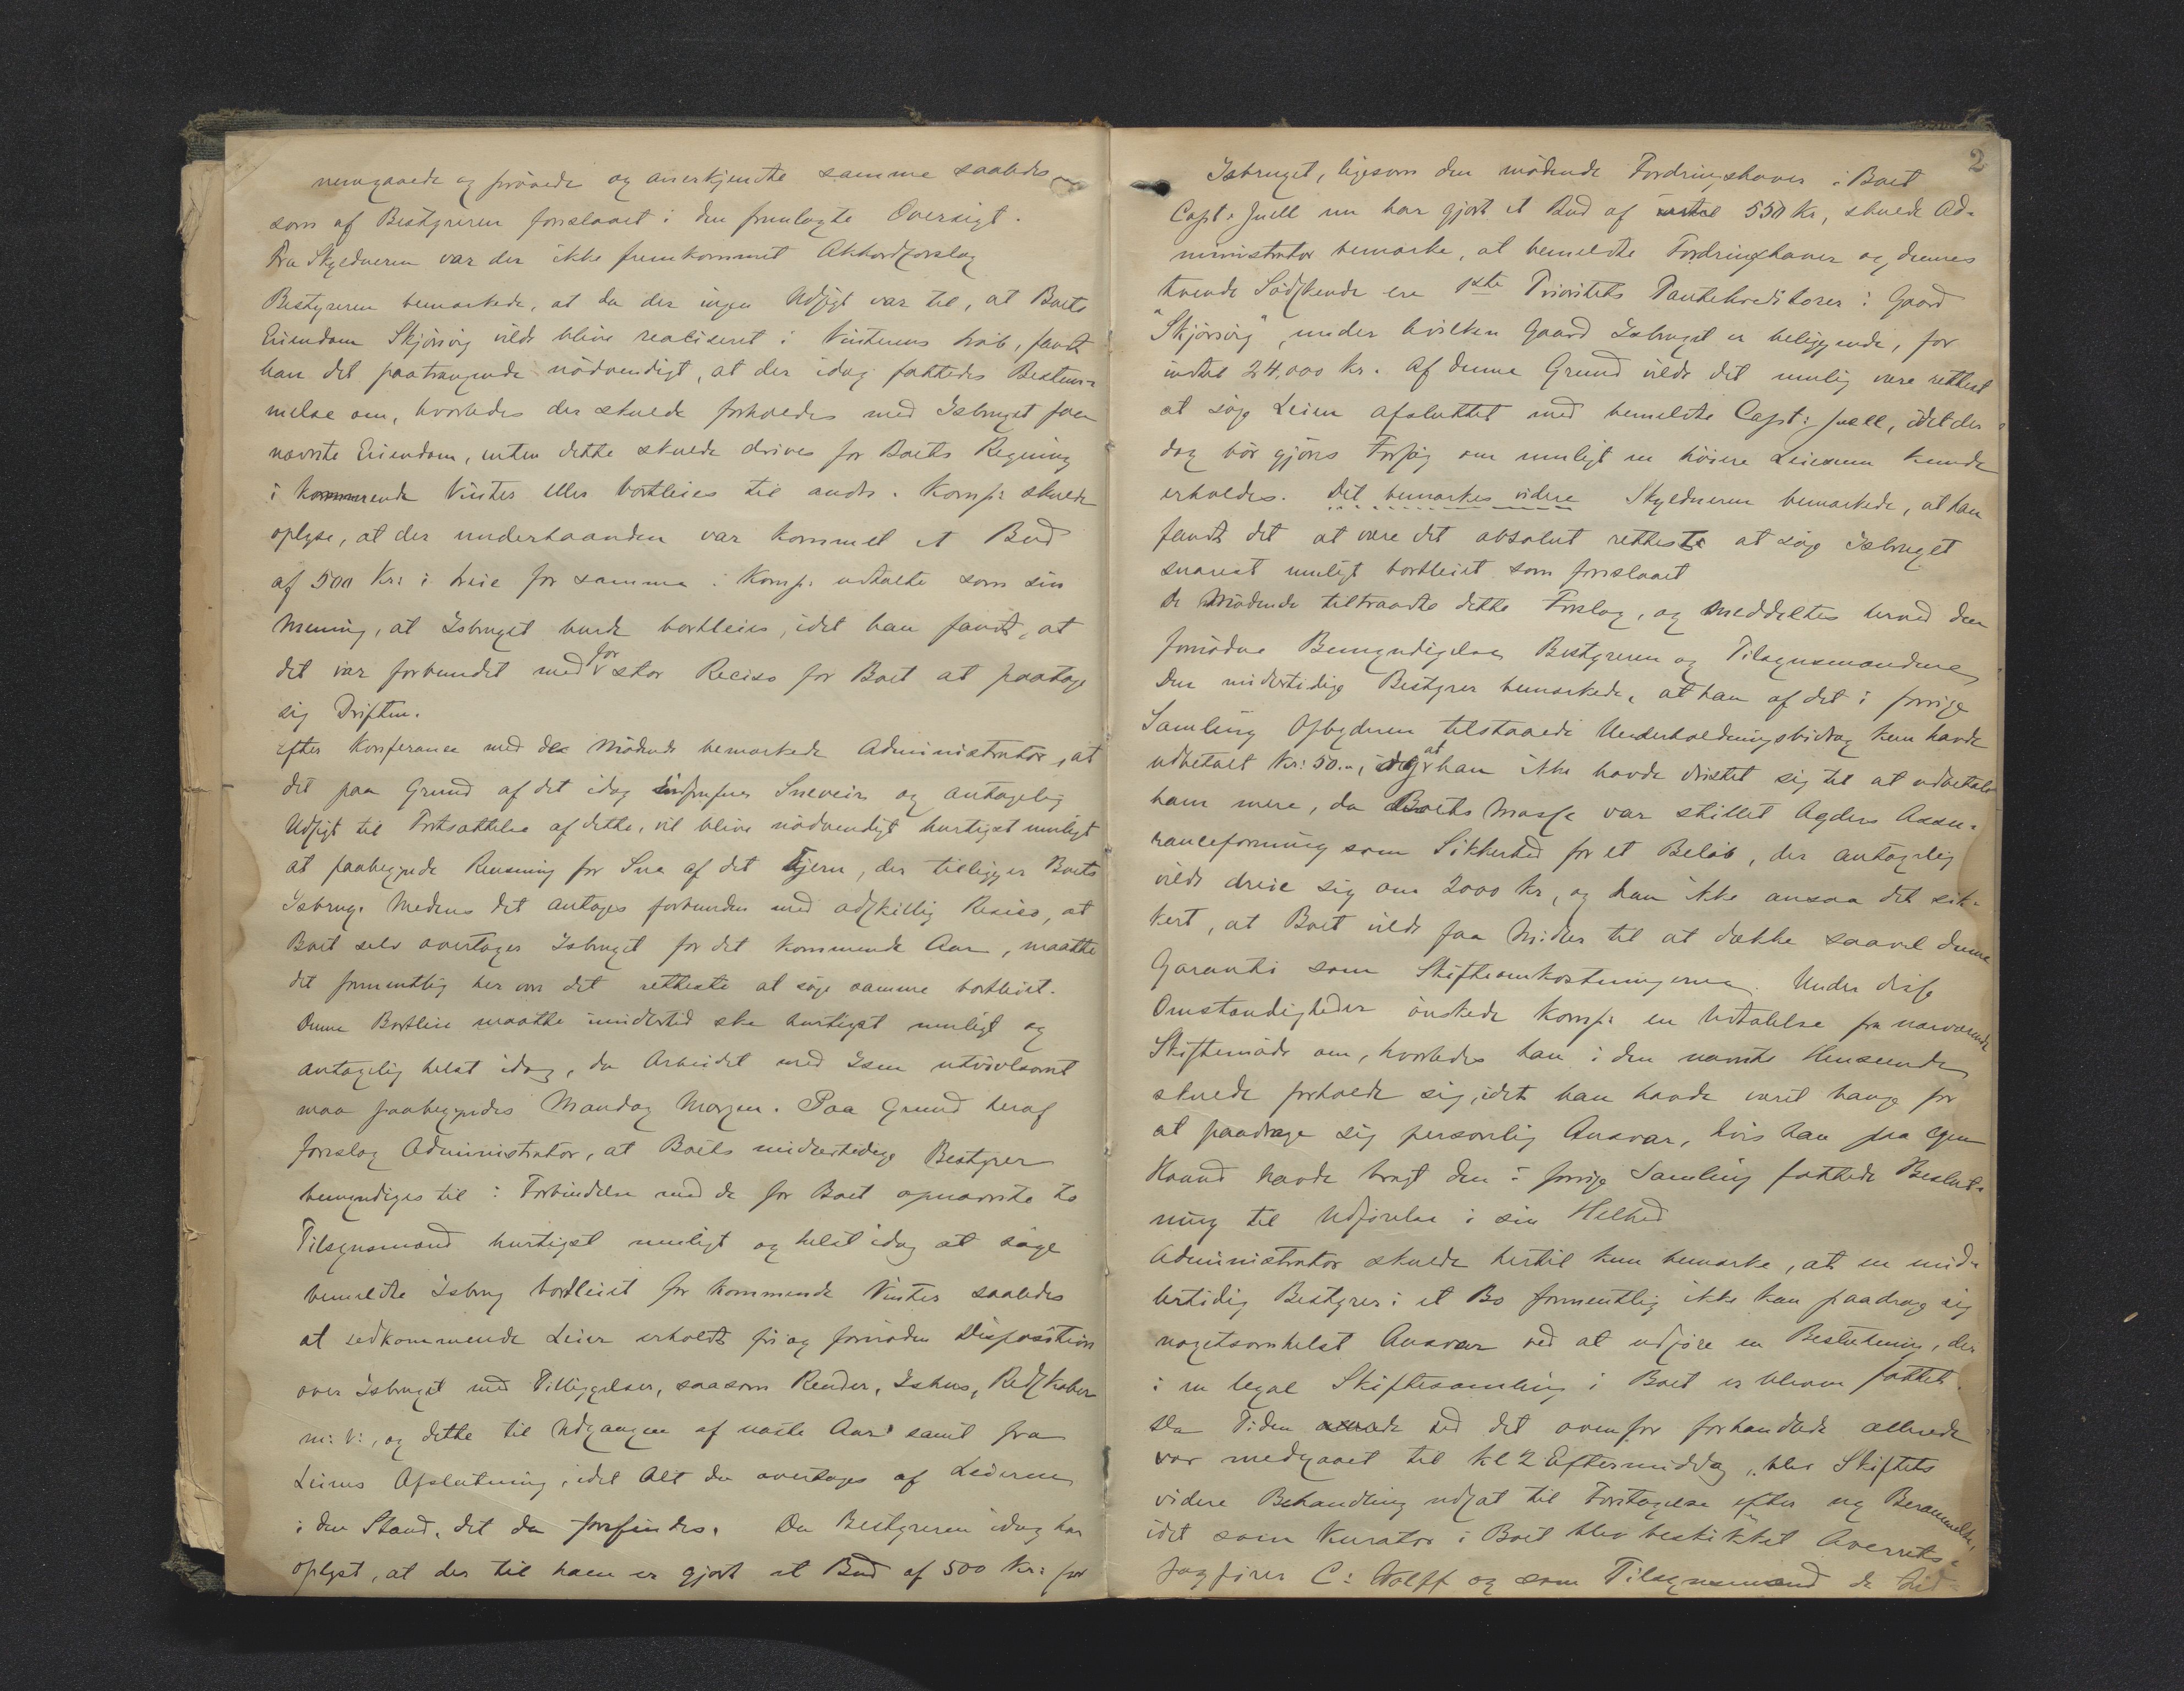 nemgaaede og prövede og anerkjendte samme saaledes
som af Bestyreren foreslaaet i den fremlagte Oversigt.
Fra Skyldneren var der ikke fremkommet Akkordforslag
Bestyreren bemærkede, at da der ingen Udsigt var til, at Boets
Eiendom Skjörsvig vilde blive realiseret i Vinterens Löb, fandt
han det paatrængende nödvendigt, at der idag fattedes Bestem-
melse om, hvorledes der skulde forholdes med Isbruget paa
nævnte Eiendom, enten dette skulde drives for Boets Regning
i kommende Vinter eller bortleies til andre. Komp: skulde
oplyse, at der underhaanden var kommet et Bud
af 500 Kr: i Leie for samme. Komp: udtalte som sin
Mening, at Isbruget burde bortleies, idet han fandt, at
det var forbundet med for stor Reciso for Boet at paatage
sig Driften.
Efter Konferance med de Mödende bemærkede Administrator, at
det paa Grund af det idag Sneveir og antagelig
Udsigt til Fortsættelse af dette, vil blive nödvendigt hurtigst muligt
at paabegynde Rensning for Sne af det Tjern, der tilligger Boets
Isbrug. Medens det antages forbunden med adskillig Resiso, at
Boet selv overtager Isbruget for det kommende Aar, maatte
det formentlig her være det retteste at söge samme bortleiet.
Denne Bortleie maatte imidlertid ske hurtigst muligt og
antagelig helst idag, da Arbeidet med Isen utvivlsomt
maa paabegyndes Mandag Morgen. Paa Grund heraf
foreslog Administrator, at Boets midlertidige Bestyrer
bemyndiges til i Forbindelse med de for Boet opnævnte to
Tilsynsmænd hurtigst muligt og helst idag at söge
bemeldte Isbrug bortleiet for kommende Vinter saaledes
at vedkommende Leier erholdt fri og fornöden Disposition
over Isbruget med Tilliggelser, saasom Render, Ishus, Redskaber
m: V:, og dette til Udgangen af næste Aar samt fra
Leiens Afslutning, idet Alt da overtages af Leieren
i den Stand, det da forefindes. Da Bestyreren idag har
oplyst, at der til ham er gjort et Bud af 500 Kr: for
2
Isbruget, ligesom den mödende Fordringshaver i Boet
Capt. Juell nu har gjort et Bud af 550 Kr, skulde Ad-
ministrator bemærke, at bemeldte Fordringshaver og dennes
tvende Södskende ere 1ste Prioritets Pantekreditorer i Gaard
"Skjörsvig", under hvilken Gaard Isbruget er beliggende, for
indtil 24,000 Kr. Af denne Grund vilde det muligt være rettest
at söge Leien afsluttet med bemeldte Capt: Juell, idet der
dog bör gjöres Forsög om muligt en höiere Leiesum kunde
erholdes. Det bemærkes videre Skyldneren bemærkede, at han
fandt det at være det absolut retteste at söge Isbruget
snarest muligt bortleiet som foreslaaet
De Mödende tiltraadte dette Forslag, og meddeltes herved den
fornödne Bemyndigelse Bestyreren og Tilsynsmændene
Den midlertidige Bestyrer bemærkede, at han af det i forrige
Samling Opbyderen tilstaaede Underholdningsbidrag kun havde
udbetalt Kr: 50.-, og at han ikke havde dristet sig til at udbetale
ham mere, da Boets Masse var stillet Agders Assu-
ranceforening som Sikkerhed for et Belöb, der antagelig
vilde dreie sig om 2000 Kr, og han ikke ansaa det sik-
kert, at Boet vilde faa Midler til at dække saavel denne
Garanti som Skifteomkostningerne. Under disse
Omstændigheder önskede Komp: en Udtalelse fra nærværende
Skiftemöde om, hvorledes han i den nævnte Henseende
skulde forholde sig, idet han havde været bange for
at paadrage sig personlig Ansvar, hvis han paa egen
Haand havde bragt den i forrige Samling fattede Beslut-
ning til Udförelse i sin Helhed
Administrator skulde hertil kun bemærke, at en mid-
lertidig Bestyrer i et Bo formentlig ikke kan paadrage sig
nogetsomhelst Ansvar ved at udföre en Beslutning, der
i en legal Skiftesamling i Boet er bleven fattet.
Da Tiden ved det ovenfor forhandlede allerede
var medgaaet til Kl 2 Eftermiddag, blev Skiftets
videre Behandling udsat til Foretagelse efter ny Berammelse,
idet som Kurator i Boet blev beskikket Overrets-
sagförer C: Wolff og som Tilsynsmænd de tid-